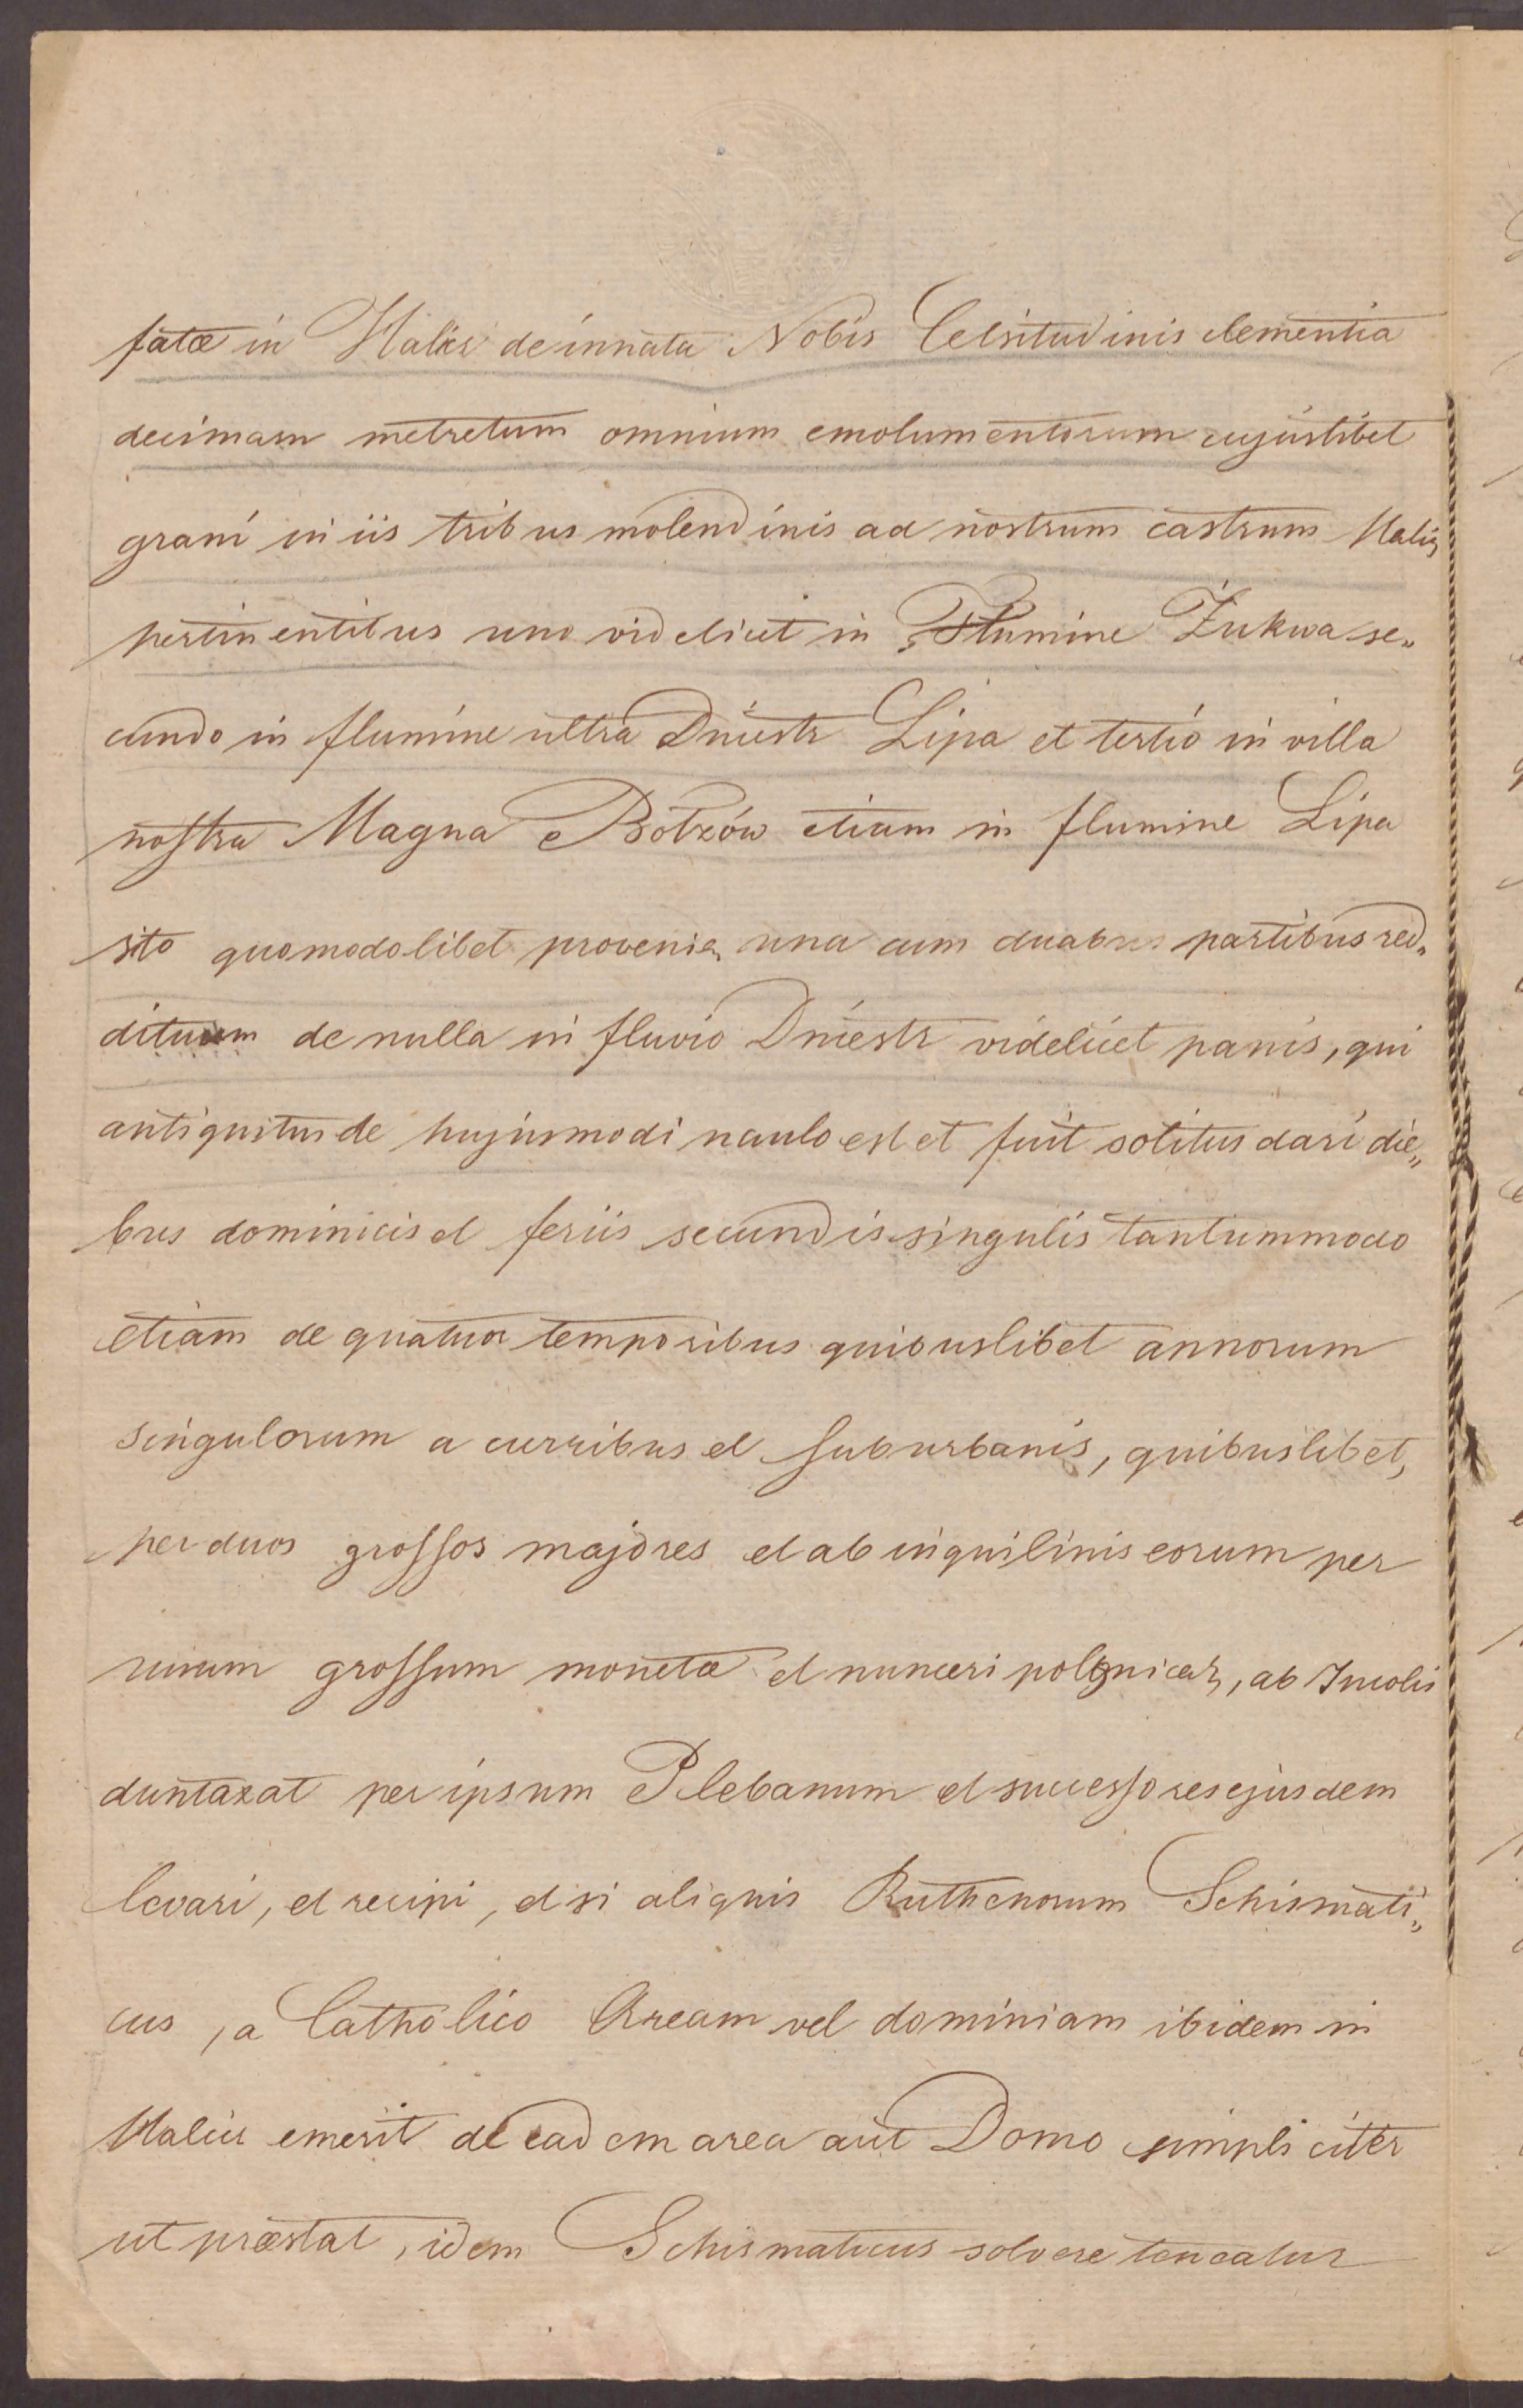 fatæ in Halicz de innata Nobis Celsitudinis clementia
decimam metretum omnium emolumentorum cujuslibet
grani in iis tribus molendinis ad nostrum castrum Halicz
pertinentibus uno videlicet in Flumine Żukwa se„
cundo in flumine ultra Dniestr Lipa et tertio in villa
nostra Magna Botzów etiam in flumine Lipa
sito quomodolibet provenien una cum duabus partibus red„
dituum de nulla in fluvio Dniestr videlicet panis, qui
antiquitus de hujusmodi naulo est et fuit solitus dari die„
bus dominicis et feriis secundis singulis tantummodo
etiam de quatuor temporibus quibuslibet annorum
singulorum a curribus et suburbanis, quibuslibet,
per duos grossos majores et ab inquilinis eorum per
unum grossum monetæ et numeri polonical, ab Incolis
duntaxat per ipsum Plebanum et successores ejusdem
levari, et recipi, et si aliquis Ruthenorum Schismati„
cus, a Catholico Aream vel dominiam ibidem in
Halicz emerit de eadem area aut Domo simpliciter
ut præstat, idem Schismaticus solvere teneatur